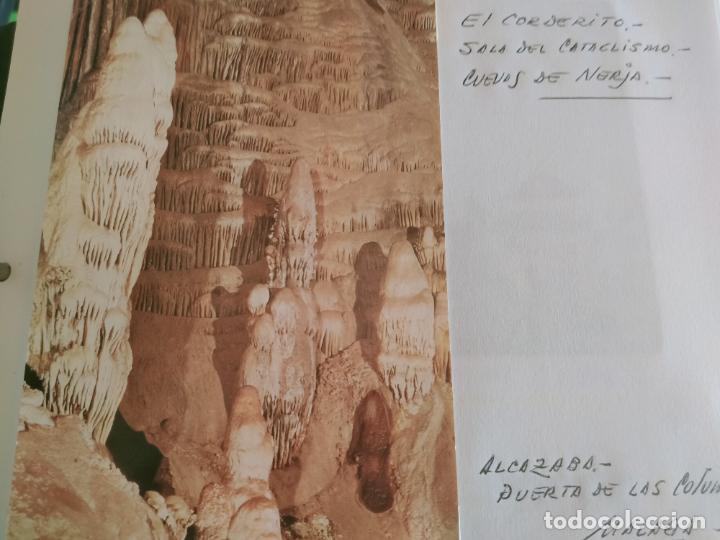 El CORDERITO.-
SALA DEL CATACLISMO.-
CUEVAS DE NERJA.-
ALCAZABA.-
PUERTA DE LAS Colum
MALAGA -
todocoleccion.net